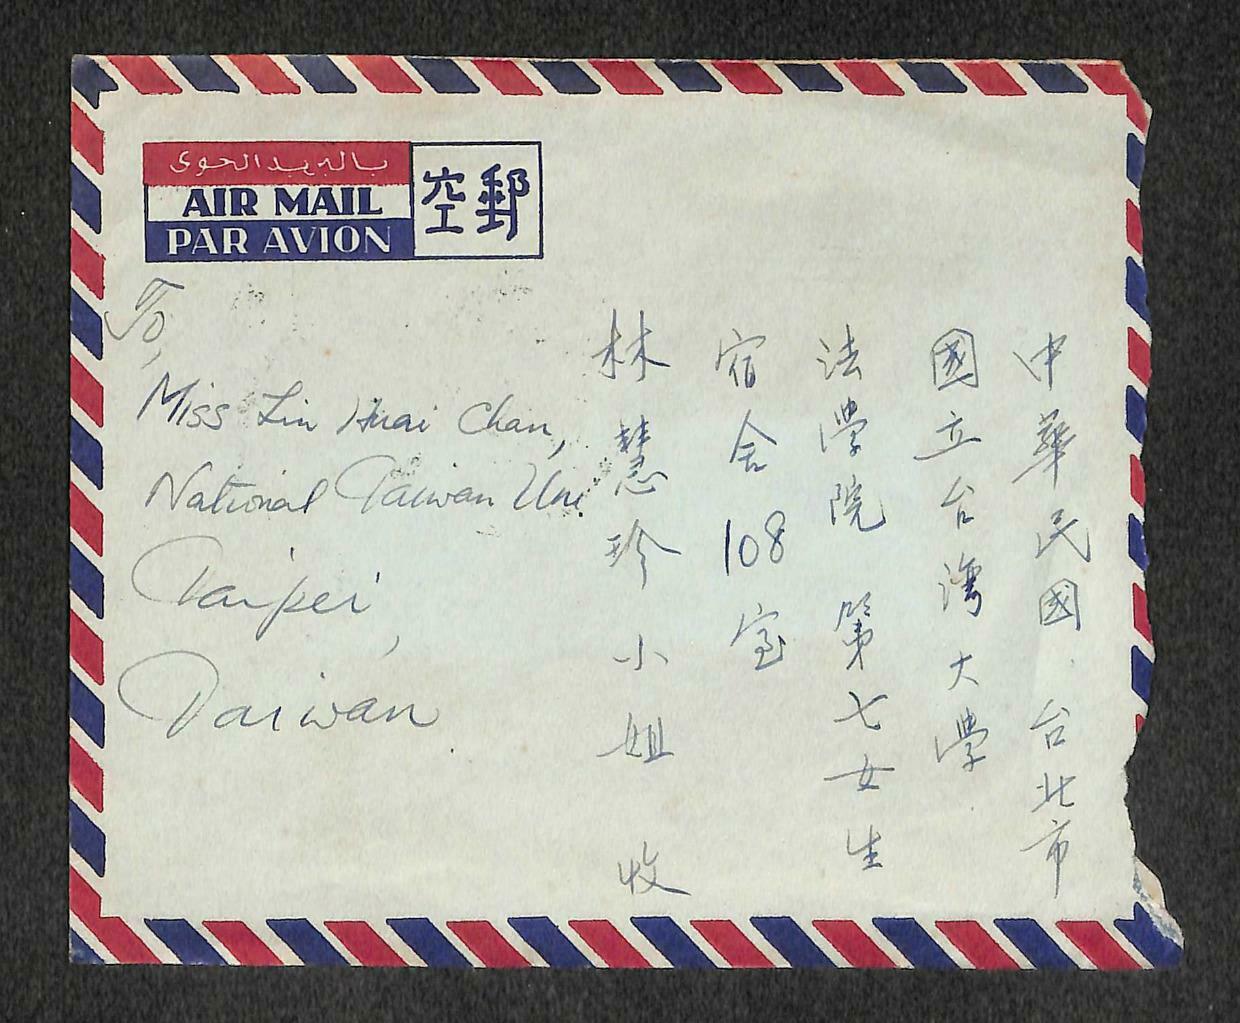 بالبريد الجوى
AIR MAIL
PAR AVION
空郵
To,
Miss Lin Huai Chan,
National Taiwan Uni
Taipei,
Taiwan
中華民國.台北市
國立台灣大學
法學院 第七女生
宿舍108室
林慧珍小姐 收